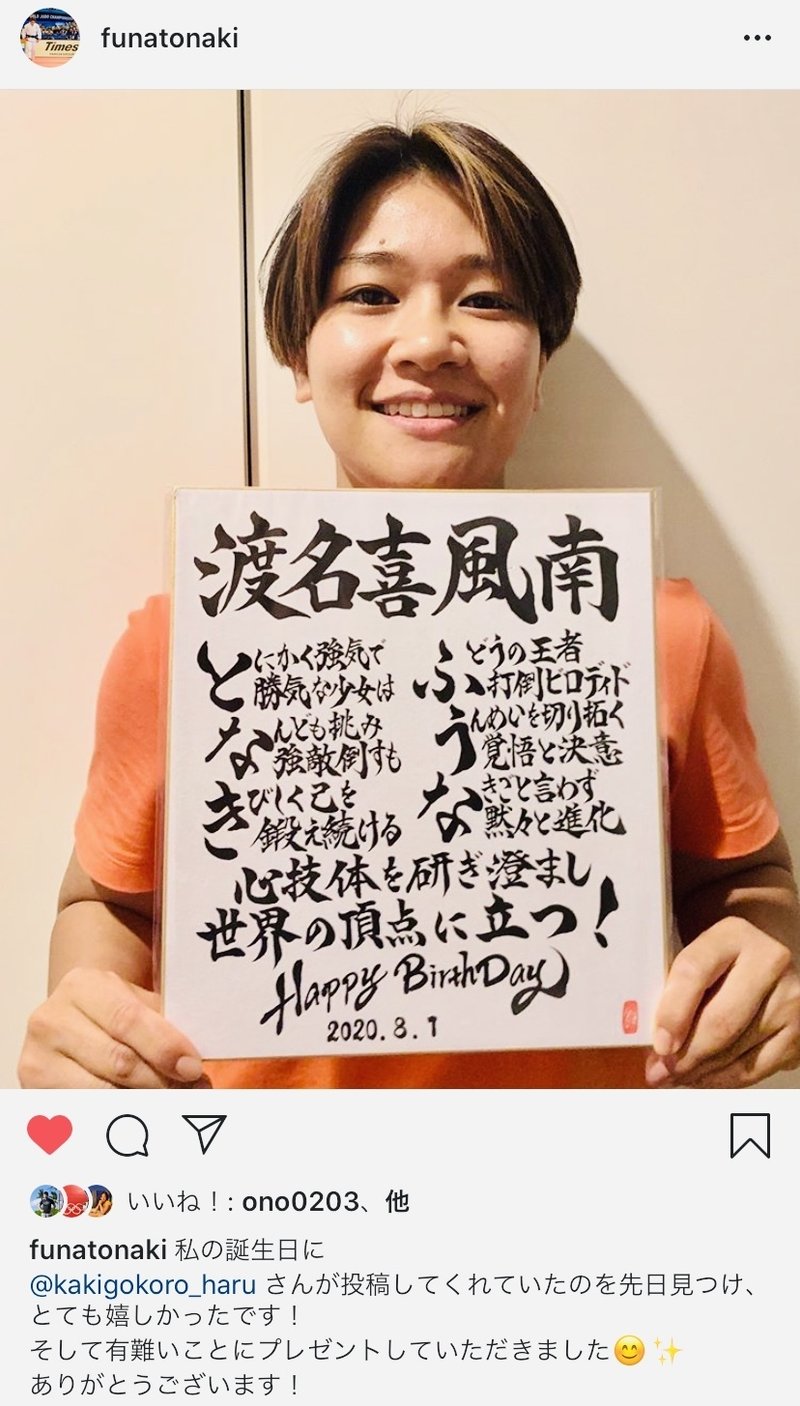 funatonaki
Times
渡名喜風南
とにかく強気で
勝気な少女は
なんども挑み
強敵倒すも
きびしく己を
鍛え続ける
ふどうの王者
打倒ビロディド
うんめいを切り拓く
覚悟と決意
なきごと言わず
黙々と進化
心技体を研ぎ澄まし
世界の頂点に立つ!
Happy BirthDay
2020.8.1
いいね!: ono0203、他
funatonaki 私の誕生日に
@kakigokoro_haru さんが投稿してくれていたのを先日見つけ、
とても嬉しかったです!
そして有難いことにプレゼントしていただきました😊✨
ありがとうございます!